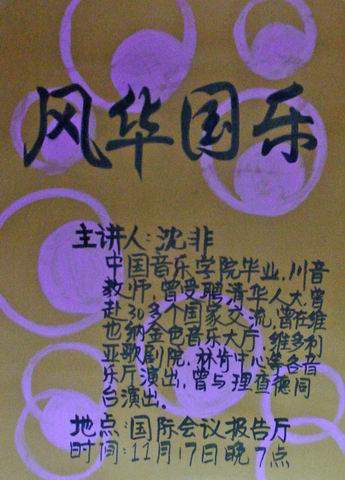 风华国乐
主讲人:沈非
中国音乐学院毕业,川音
教师,曾受聘清华人大.曾
赴30多个国家交流,曾在维
也纳金色音乐大厅,维多利
亚歌剧院,林肯中心等各音
乐厅演出,曾与理查德同
台演出.
地点:国际会议报告厅
时间:11月17日晚7点